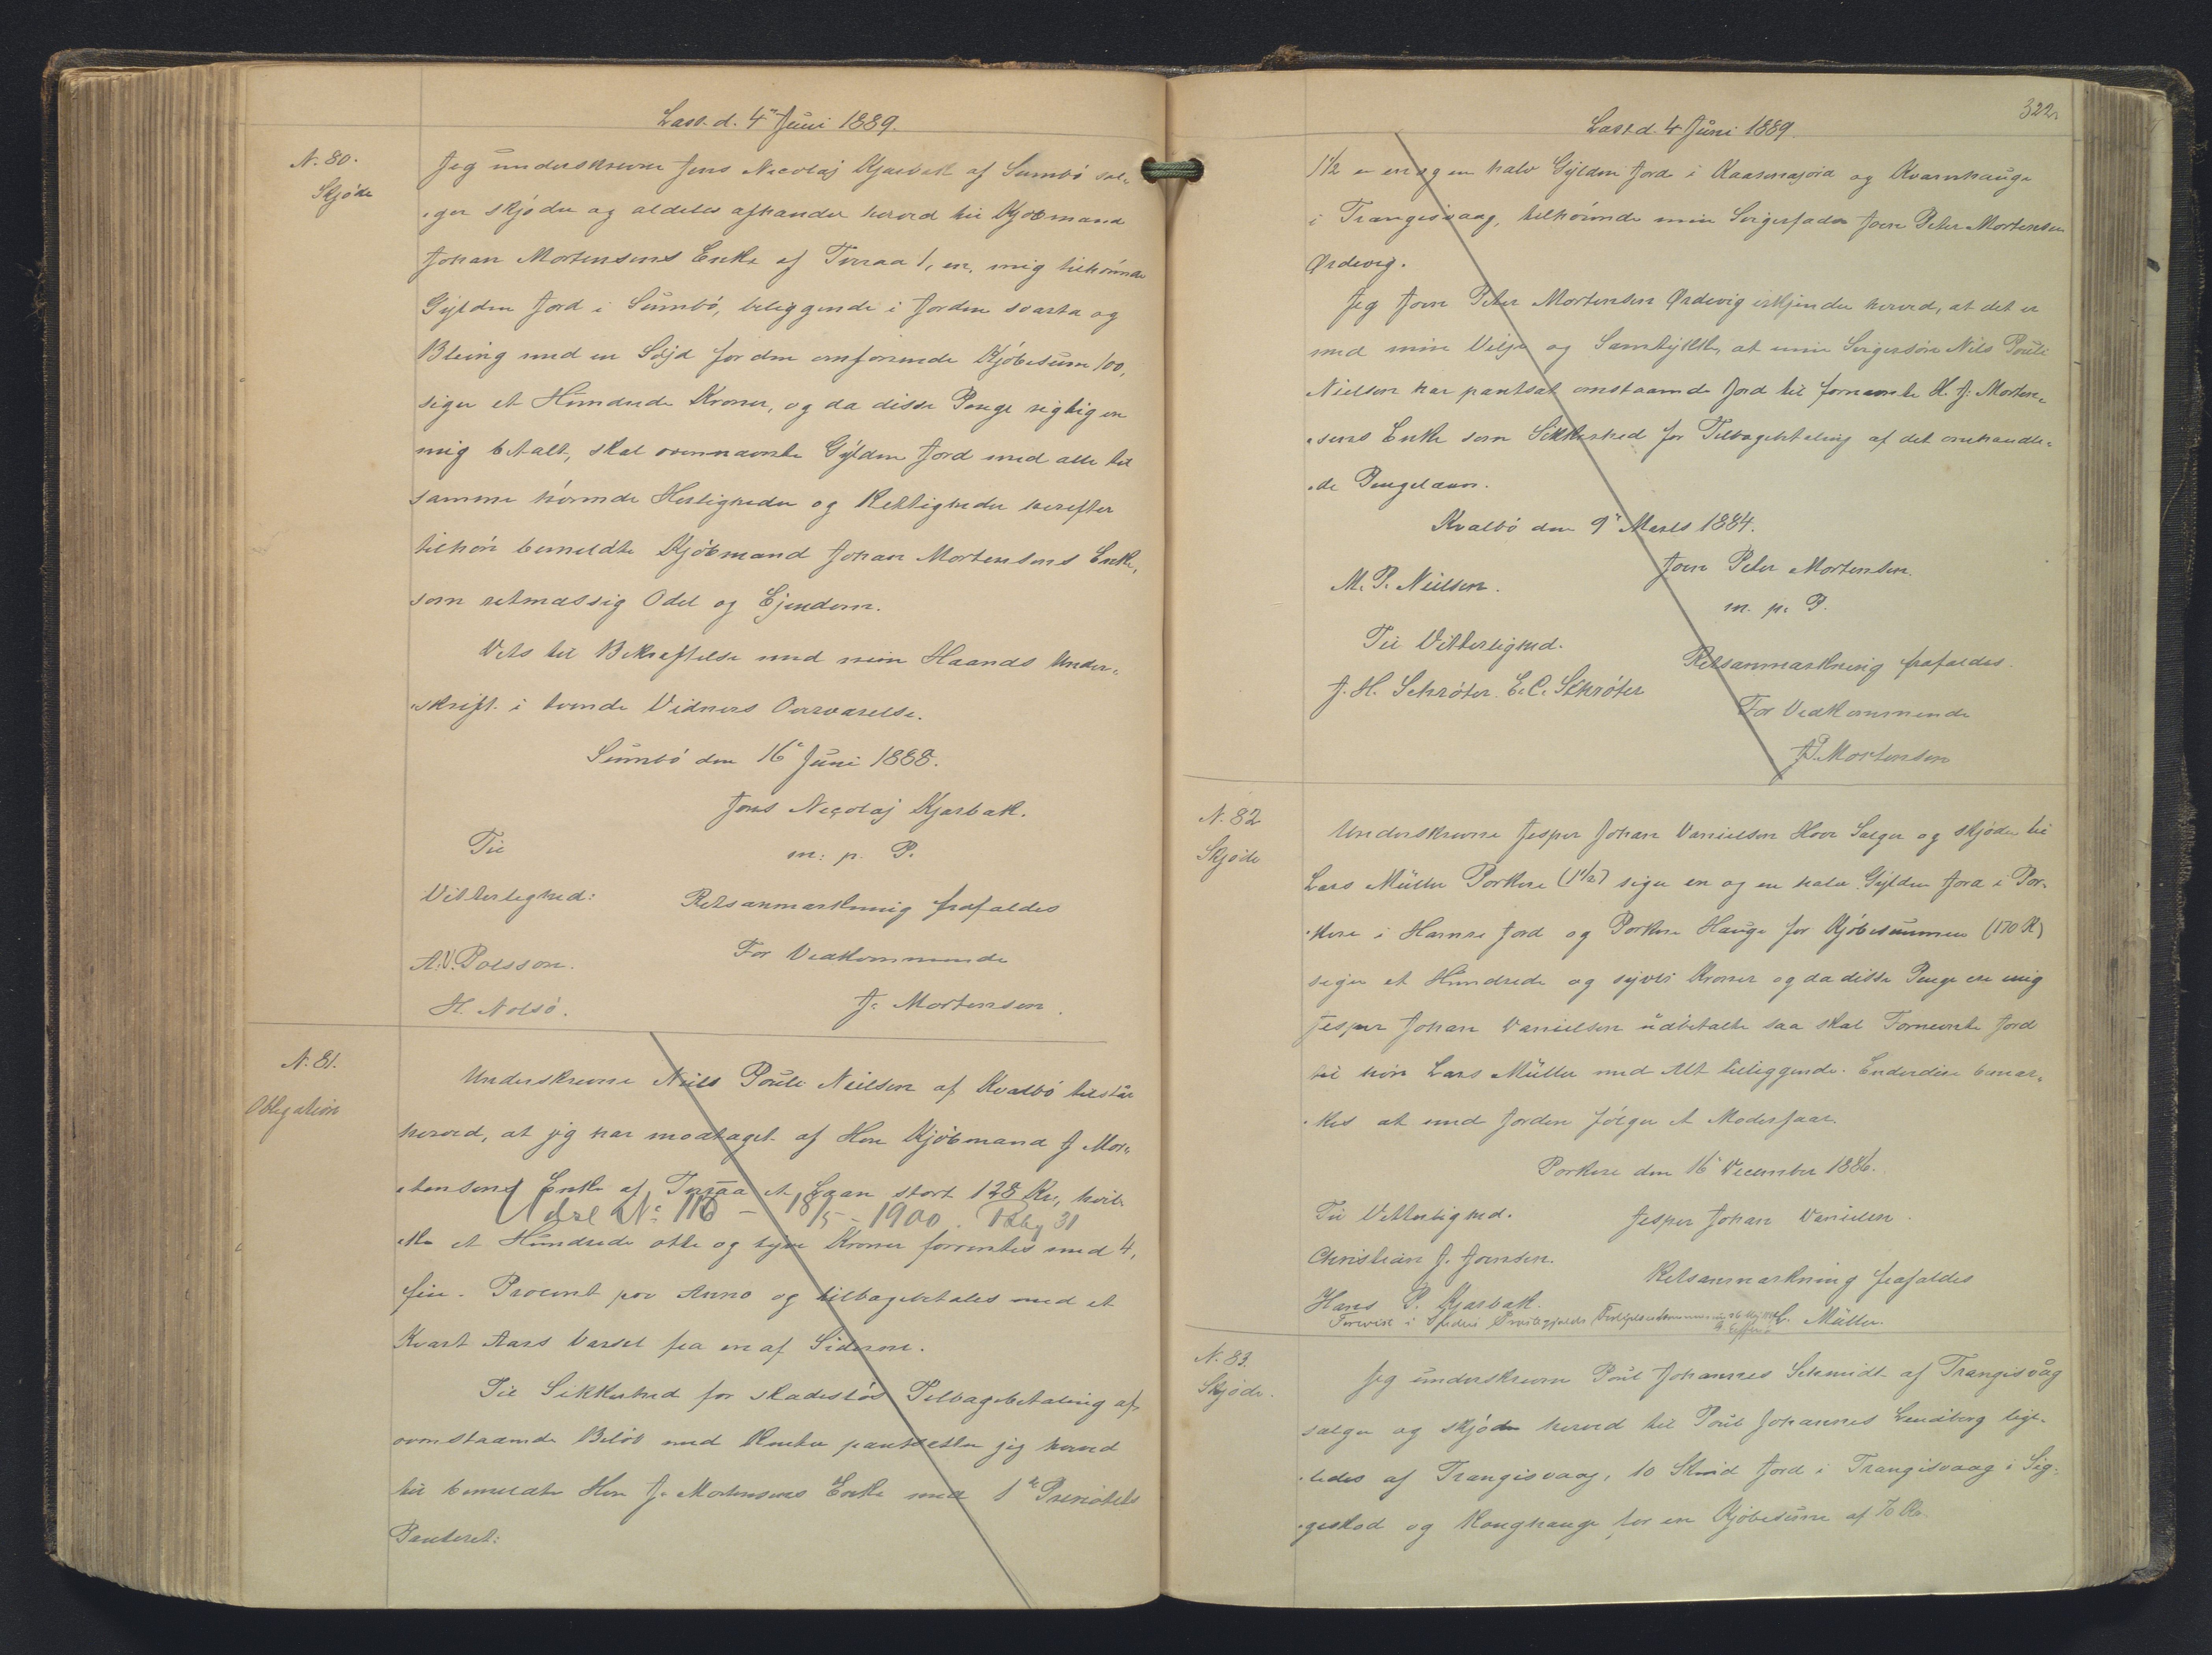 Læst d. 4" Juni 1889.
N. 80.
Skjøde
Jeg underskrevne Jens Necolaj Kjærbæk af Sumbö sæl„
„ger skjøder og aldeles afhænder herved til Kjøbmand
Johan Mortensens Enke af Tveraa 1, en, mig tilhörende
Gylden Jord i Sumbö, beliggende i Jorden svarta og
med en for den omforenede Kjöbesum 100,
siger et Hundrede Kroner, og da disse Penge rigtig ere
mig betalt, skal ovennævnte Gylden Jord med alle til
samme hörende Herligheder og Rettigheder herefter
tilhöre bemeldte Kjöbmand Johan Mortensens Enke,
som retmæssig Odel og Ejendom.
Dets til Bekræftelse med min Haands Under„
„skrift i tvende Vidners Overværelse.
Sumbö den 16" Juni 1888.
Jens Necolaj Kjærbæk.
m: p. P.
Til
Vitterlighed:
A. V. Polsson.
H. Nolsö.
Retsanmærkning frafaldes
For Vedkommende
J. Mortensen.
N. 81.
Obligation
Underskrevne Niels Poule Nielsen af Kvalbö tilstår
herved, at jeg har modtaget af Herr Kjöbmand J Mor„
„tensens Enke af Tveraa et Laan stort 128 Kr, hvil„
Udsl No 116 - 18/5 - 1900. 31
„ke et Hundrede otte og tyve Kroner forrentes med 4,
fire. Procent pro Anno og tilbagebetales med et
Kvart Aars Varsel fra en af Siderne.
Til Sikkerhed for skadeslös Tilbagebetaling af
ovenstaaende Belöb med Renter pantsætter jeg herved
til bemeldte Herr J. Mortensens Enke med 1ste Prioritets
Panteret:
322.
Læst d. 4 Juni 1889.
1½ er en og en halv Gylden Jord i og Kvarnhauge
i Trangisvaag, tilhörende min Svigerfader Joen Peter Mortensen
Ördevig.
Jeg Joen Peter Mortensen Ördevig erkjender herved, at det er
med min Vilje og Samtykke, at min Svigersön Niels Poule
Nielsen har pantsat omstaaende Jord til fornævnte H. J. Morten„
„sens Enke som Sikkerhed for Tilbagebetaling af det omhandle„
„de Pengelaan.
Kvalbö den 9" Marts 1884.
M. P. Nielsen.
Joen Peter Mortensen.
m. p. P.
Til Vitterlighed.
J. H. Schröter. E. C. Schröter
Retsanmærkning frafaldes.
For Vedkommende
J P Mortensen
N. 82
Skjøde
Underskrevne Jesper Johan Danielsen Hove Sælger og skjøder til
Lars Müller Porkere (1½) siger en og en halv Gylden Jord i Por„
„kere i Hamre Jord og Porkere Hauge for Kjöbesummen (170 K)
siger et Hundrede og syvti Kroner og da disse Penge ere mig
Jesper Johan Danielsen udbetalte saa skal Fornevnte Jord
til höre Lars Müller med Alt tilliggende. Endvidere bemær„
„kes at med Jorden fölger et Moderfaar.
Porkere den 16 December 1886.
Til Vitterlighed.
Jesper Johan Danielsen.
Christian J. Joensen.
Hans P. Kjærbæk.
Retsanmærkning frafaldes
L. Müller.
Forevist i Suderö Provstegjelds
N. 83.
Skjøde.
Jeg underskrevne Poul Johannes Schmidt af Trangisvåg
sælger og skjöder herved til Poul Johannes Lindberg lige„
„ledes af Trangisvaag, 10 Skind Jord i Trangisvaag i Sig„
„geskod og Konghauge for en Kjöbesum af 70 Kr.